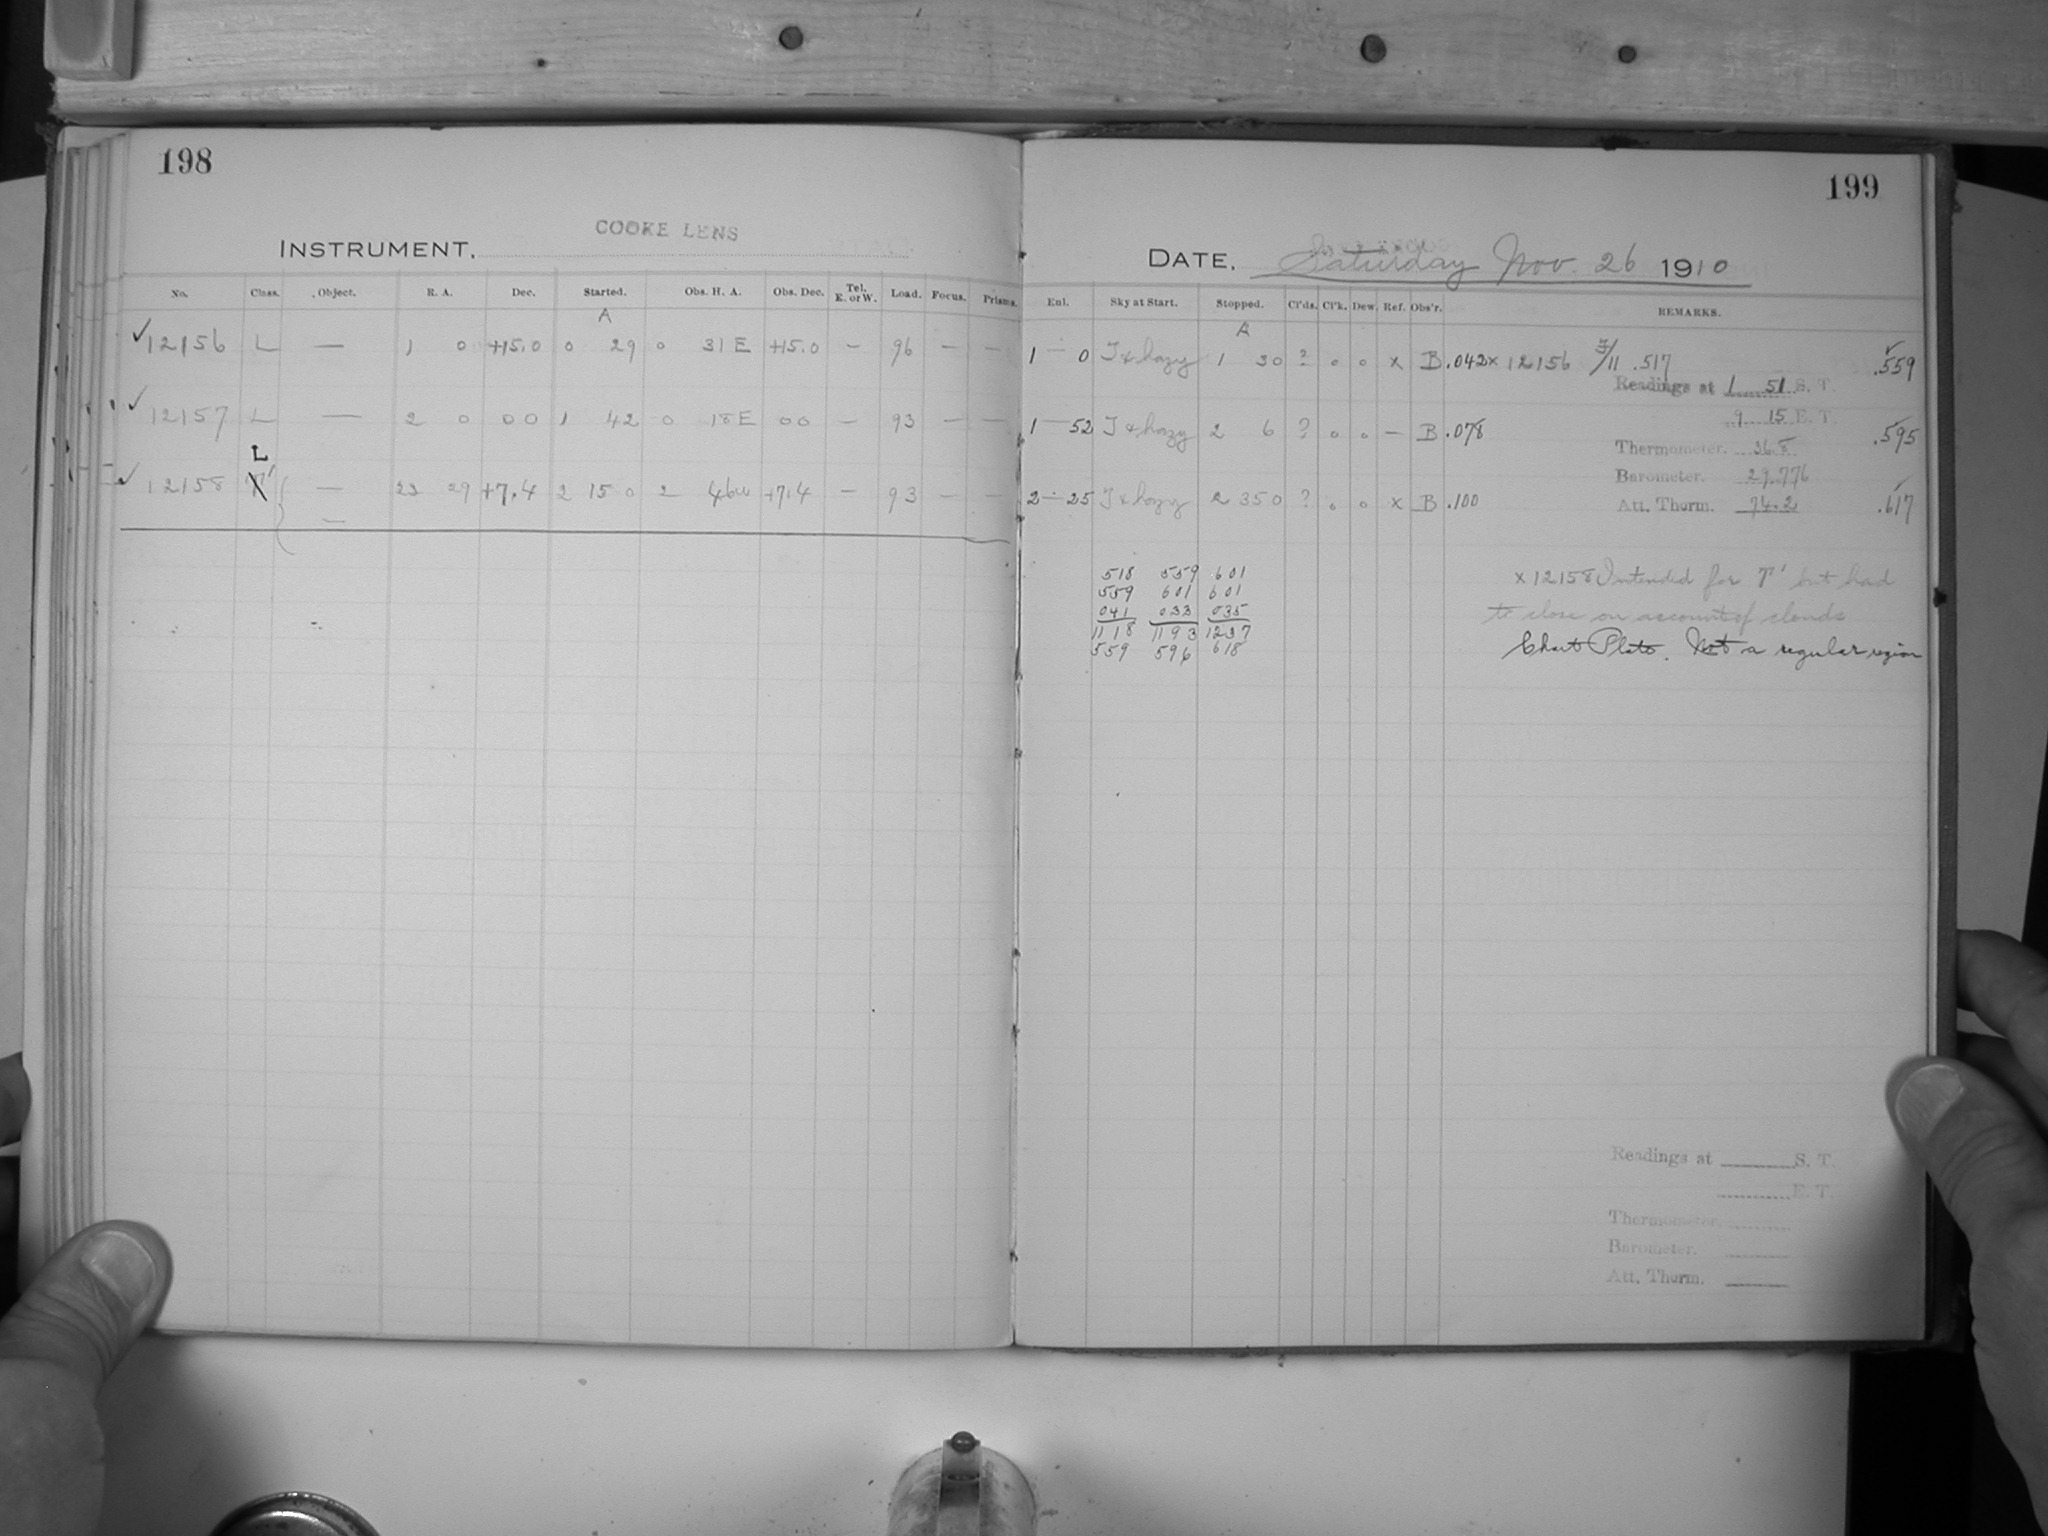 198
COOKE LENS
INSTRUMENT,
No. Class. Object. R. A. Dec. Started. Obs. H. A. Obs. Dec. Tel. E. or W. Load. Focus. Prisms.
A
✓12156 L — 1 0 +15.0 0 29 0 31 E +15.0 — 96 — —
✓12157 L — 2 0 00 1 42 0 18 E 00 — 93 — —
L
✓12158 T' — 23 29 +7.4 2 15 0 2 46w +7.4 — 93 — —
—
199
DATE, Saturday Nov. 26 1910
Exl. Sky at Start. Stopped. Cl'ds. Cl'k. Dew. Ref. Obs'r. REMARKS.
A
1 — 0 I & hazy 1 30 ? 0 0 x B .042 x 12156 .517 .559
Readings at 1 51 S. T.
9 15 E. T.
1 — 52 I & hazy 2 6 ? 0 0 — B .078 .595
Thermometer. 36.5
Barometer. 29.776
2 — 25 I & hazy 2 35 0 ? 0 0 x B .100
Att. Therm. 74.2 .617
518 559 601
559 601 601
041 033 035
1118 1193 1237
559 596 618
x 12158 Intended for T' but had
to close on account of clouds
Chart Plate. Not a regular region
Readings at S. T.
E. T.
Thermometer.
Barometer.
Att. Therm.